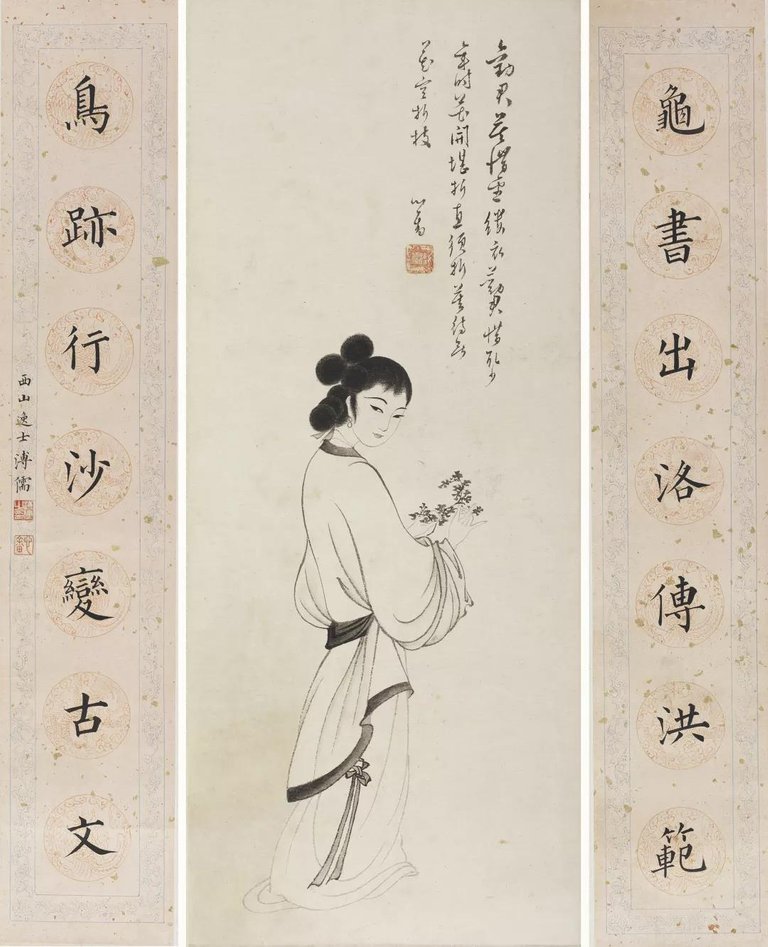 龜書出洛傳洪範
勸君莫惜金縷衣勸君惜取少
年時花開堪折直須折莫待無
花空折枝
心畬
鳥跡行沙變古文
西山逸士溥儒